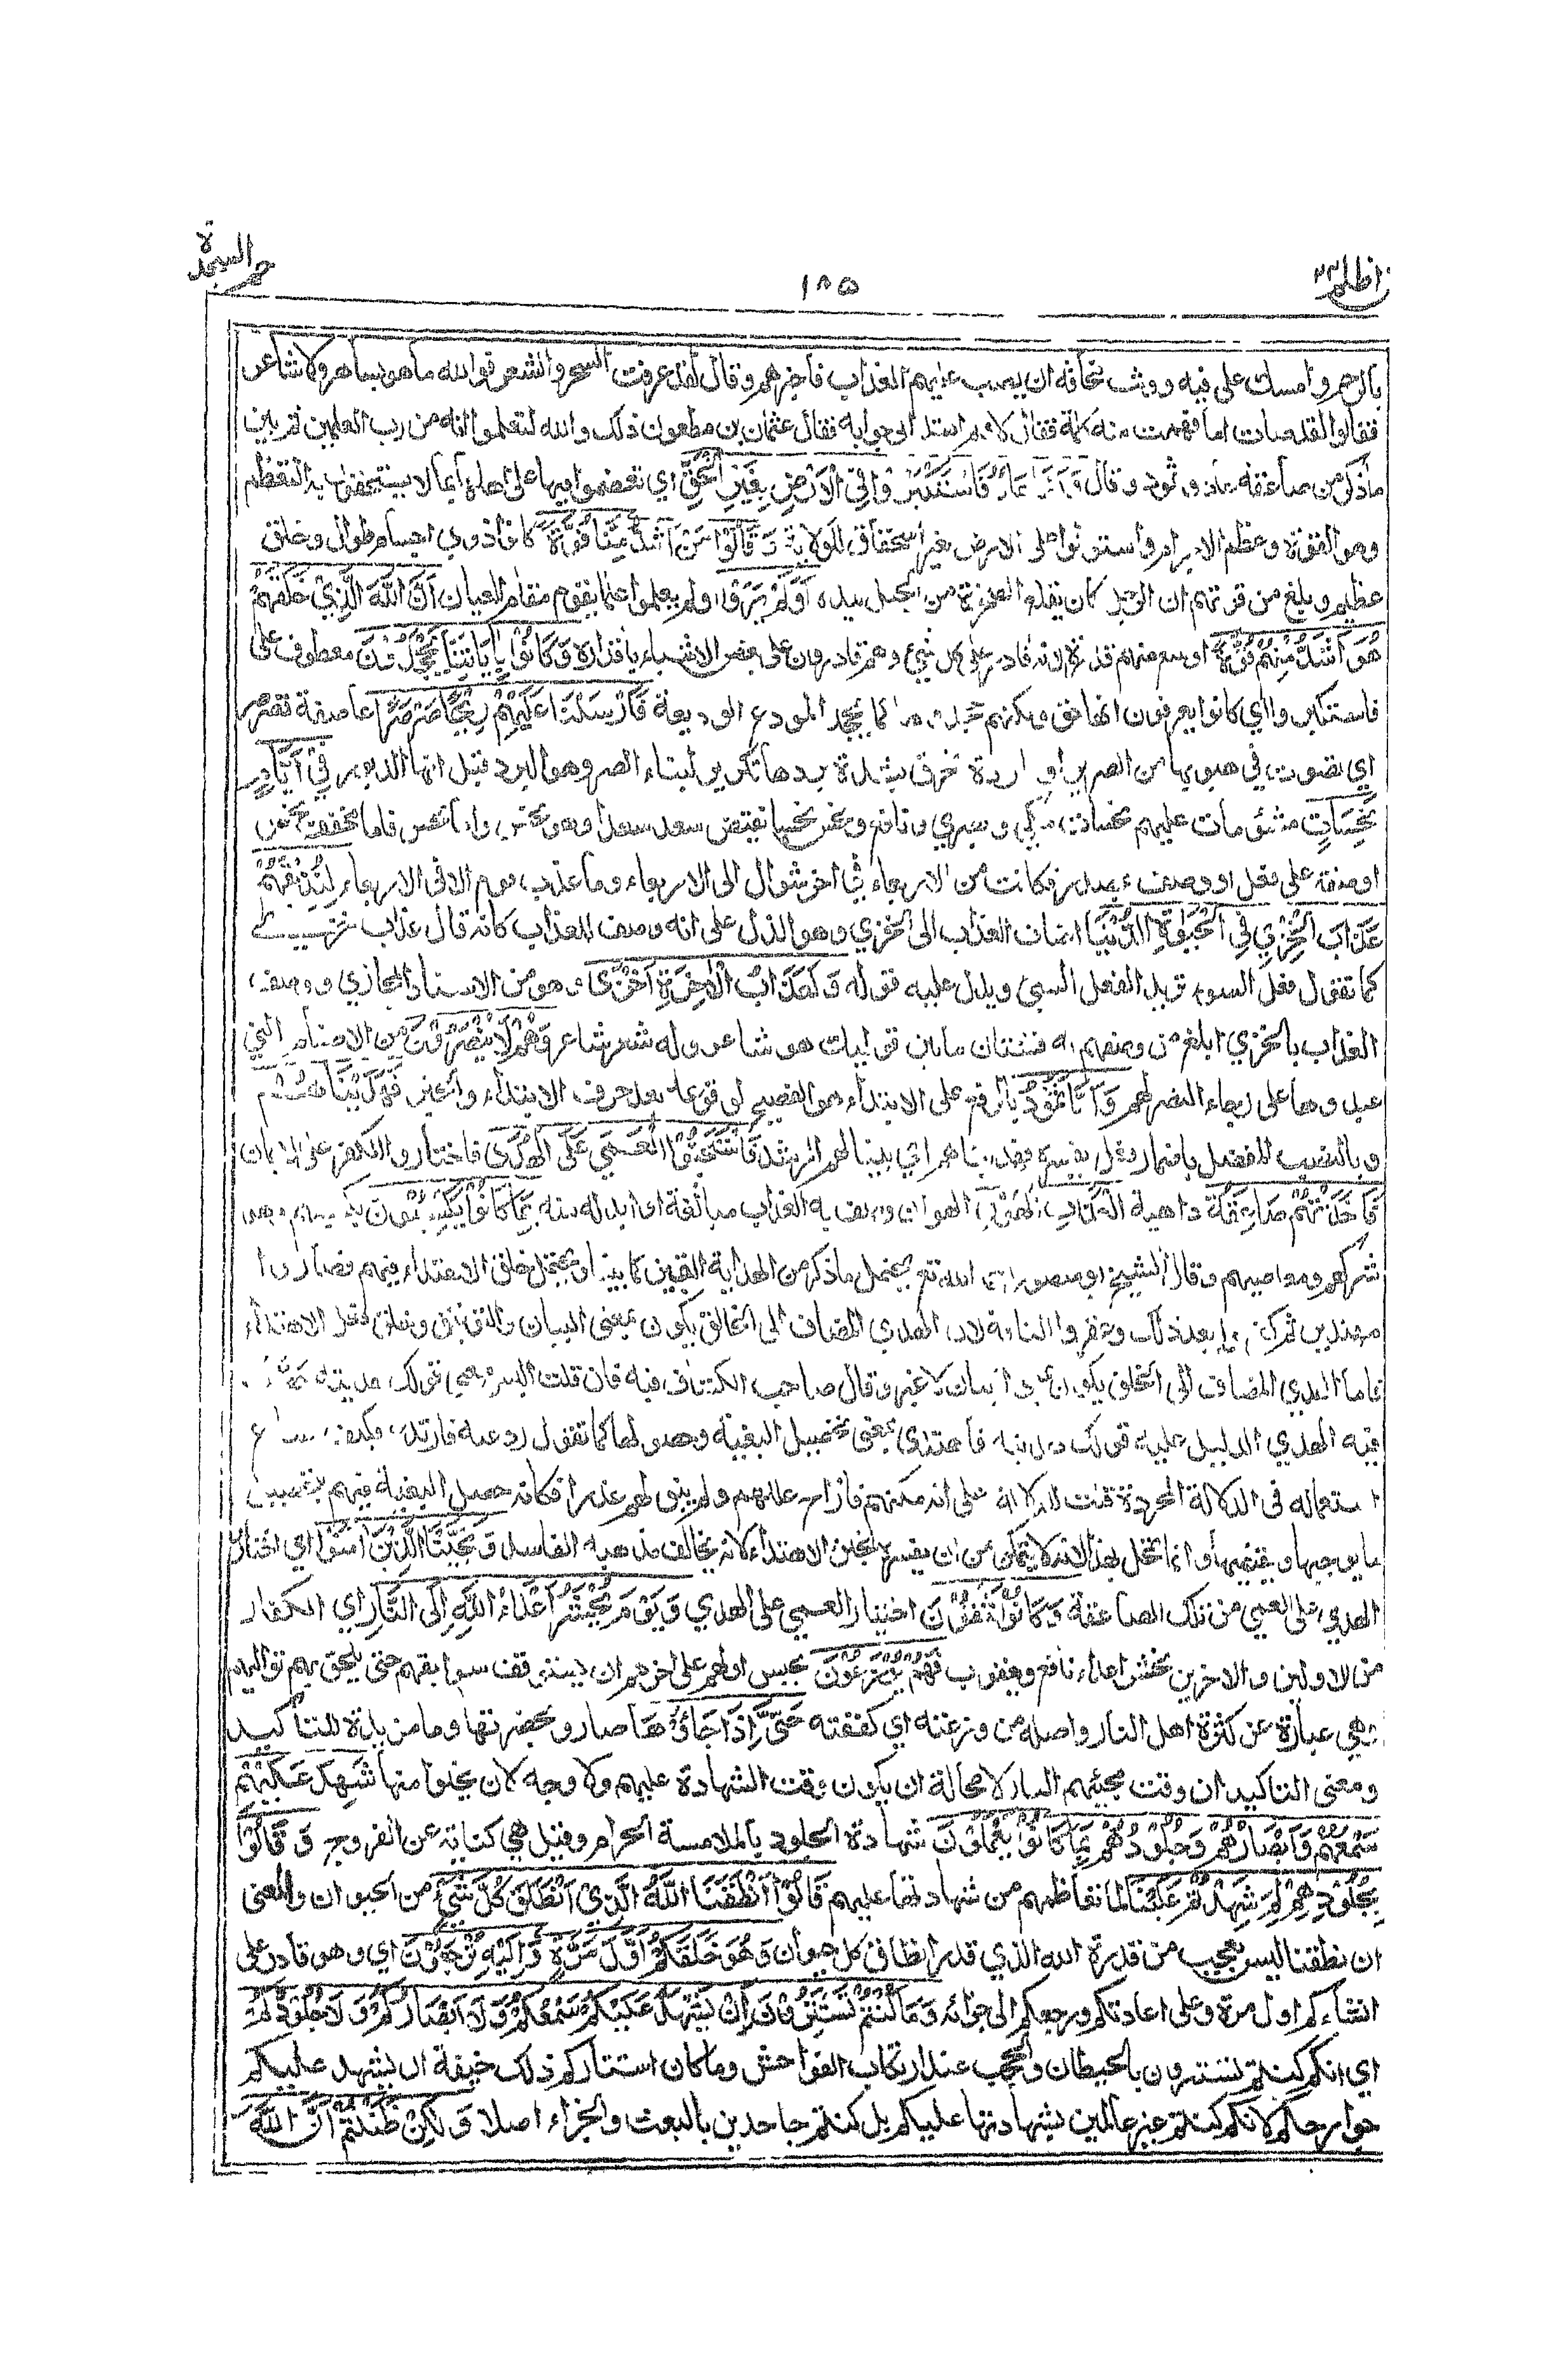 فمن اظلم ٢٤
١٨٥
حم السجدة
بالرحم وامسك على فيه ووثب مخافة ان يصب عليهم العذاب فاخبرهم وقال لقد عرفت السحر والشعر فوالله ما هو بساحر ولا شاعر
فقالوا لقد صبات اما فهمت منه كلمة فقال لا ولم اهتد الى جوابه فقال عثمان بن مظعون ذلك والله لتعلموا انه من رب العلمين ثم بين
ما ذكر من صاعقة عاد وثمود وقال فَاَمَّا عَادٌ فَاسْتَكْبَرُوْا فِى الْاَرْضِ بِغَيْرِ الْحَقِّ اي تعظموا فيها على اهلها بما لا يستحقون به التعظم
وهو القوة وعظم الاجرام واستولوا على الارض بغير استحقاق للولاية وَقَالُوْا مَنْ اَشَدُّ مِنَّا قُوَّةً كانوا ذوي اجسام طوال وخلق
عظيم وبلغ من قوتهم ان الرجل كان يقلع الصخرة من الجبل بيده اَوَلَمْ يَرَوْا اولم يعلموا علما يقوم مقام العيان اَنَّ اللّٰهَ الَّذِيْ خَلَقَهُمْ
هُوَ اَشَدُّ مِنْهُمْ قُوَّةً اوسع منهم قدرة لانه قادر على كل شيء وهم قادرون على بعض الاشياء باقداره وَكَانُوْا بِاٰيَاتِنَا يَجْحَدُوْنَ معطوف على
فاستكبروا اي كانوا يعرفون انها حق ولكنهم جحدوها كما يجحد المودع الوديعة فَاَرْسَلْنَا عَلَيْهِمْ رِيْحًا صَرْصَرًا عاصفة تصرصر
اي تصوت في هبوبها من الصرير او باردة تحرق بشدة بردها تكرير لبناء الصر وهو البرد قيل انها الدبور فِيْ اَيَّامٍ
نَحِسَاتٍ مشئومات عليهم نحسات مكي وبصري ونافع ونحس نحسا نقيض سعد سعدا وهو نحس واما نحس فاما مخفف نحس
او صفة على فعل او وصف بمصدر وكانت من الاربعاء في اخر شوال الى الاربعاء وما عذب قوم الا في الاربعاء لِنُذِيْقَهُمْ
عَذَابَ الْخِزْيِ فِي الْحَيٰوةِ الدُّنْيَا اضاف العذاب الى الخزي وهو الذل على انه وصف للعذاب كانه قال عذاب خزي
كما تقول فعل السوء تريد الفعل السيئ ويدل عليه قوله وَلَعَذَابُ الْاٰخِرَةِ اَخْزٰى وهو من الاسناد المجازي ووصف
العذاب بالخزي ابلغ من وصفهم به فشتان ما بين قوليك هو شاعر وله شعر شاعر وَهُمْ لَا يُنْصَرُوْنَ من الاصنام التي
عبدوها على رجاء النصر لهم وَاَمَّا ثَمُوْدُ بالرفع على الابتداء هو الفصيح لوقوعه بعد حرف الابتداء والخبر فَهَدَيْنٰهُمْ
وبالنصب المفضل باضمار فعل يفسره فهديناهم اي بينا لهم الرشد فَاسْتَحَبُّوا الْعَمٰى عَلَى الْهُدٰى فاختاروا الكفر على الايمان
فَاَخَذَتْهُمْ صَاعِقَةُ داهية الْعَذَابِ الْهُوْنِ الهوان وصف به العذاب مبالغة او ابدله منه بِمَا كَانُوْا يَكْسِبُوْنَ بكسبهم وهو
شركهم ومعاصيهم وقال الشيخ ابو منصور رحمه الله تع يحتمل ما ذكر من الهداية التبيين كما بينا ويحتمل خلق الاهتداء فيهم فصاروا
مهتدين ثم كفروا بعد ذلك وعقروا الناقة لان الهدي المضاف الى الخالق يكون بمعنى البيان والتوفيق وخلق فعل الاهتداء
فاما الهدي المضاف الى الخلق يكون بمعنى البيان لا غير وقال صاحب الكشاف فيه فان قلت اليس معنى قولك هديته
فيه الهدي الدليل عليه قولك هديته فاهتدى بمعنى تحصيل البغية وحصولها كما تقول ردعته فارتدع فكيف ساغ
استعماله في الدلالة المجردة قلت للدلالة على انه مكنهم فازاح عللهم ولم يبق لهم عذرا فكانه حصل البغية فيهم بتحصيل
ما يوجبها ويقتضيها وانما تمحل بهذا لانه لا يتمكن من ان يفسره بخلق الاهتداء لانه يخالف مذهبه الفاسد وَنَجَّيْنَا الَّذِيْنَ اٰمَنُوْا اي اختاروا
الهدي على العمى من تلك الصاعقة وَكَانُوْا يَتَّقُوْنَ اختيار العمى على الهدي وَيَوْمَ يُحْشَرُ اَعْدَاءُ اللّٰهِ اِلَى النَّارِ اي الكفار
من الاولين والاخرين نحشر اعداء نافع ويعقوب فَهُمْ يُوْزَعُوْنَ يحبس اولهم على اخرهم اي يستوقف سوابقهم حتى يلحق بهم تواليهم
وهي عبارة عن كثرة اهل النار واصله من وزعته اي كففته حَتّٰى اِذَا مَا جَاءُوْهَا صاروا بحضرتها وما مزيدة للتاكيد
ومعنى التاكيد ان وقت مجيئهم النار لا محالة ان يكون وقت الشهادة عليهم ولا وجه لان يخلوا منها شَهِدَ عَلَيْهِمْ
سَمْعُهُمْ وَاَبْصَارُهُمْ وَجُلُوْدُهُمْ بِمَا كَانُوْا يَعْمَلُوْنَ شهادة الجلود بالملامسة الحرام وقيل هي كناية عن الفروج وَقَالُوْا
لِجُلُوْدِهِمْ لِمَ شَهِدْتُّمْ عَلَيْنَا لما تعاظمهم من شهادتها عليهم قَالُوْا اَنْطَقَنَا اللّٰهُ الَّذِيْ اَنْطَقَ كُلَّ شَيْءٍ من الحيوان والمعنى
ان نطقنا ليس بعجيب من قدرة الله الذي قدر انطاق كل حيوان وَهُوَ خَلَقَكُمْ اَوَّلَ مَرَّةٍ وَّاِلَيْهِ تُرْجَعُوْنَ اي وهو قادر على
انشاءكم اول مرة وعلى اعادتكم ورجعكم الى جزائه وَمَا كُنْتُمْ تَسْتَتِرُوْنَ اَنْ يَّشْهَدَ عَلَيْكُمْ سَمْعُكُمْ وَلَا اَبْصَارُكُمْ وَلَا جُلُوْدُكُمْ
اي انكم كنتم تستترون بالحيطان والحجب عند ارتكاب الفواحش وما كان استتاركم ذلك خيفة ان يشهد عليكم
جوارحكم لانكم كنتم غير عالمين بشهادتها عليكم بل كنتم جاحدين بالبعث والجزاء اصلا وَلٰكِنْ ظَنَنْتُمْ اَنَّ اللّٰهَ